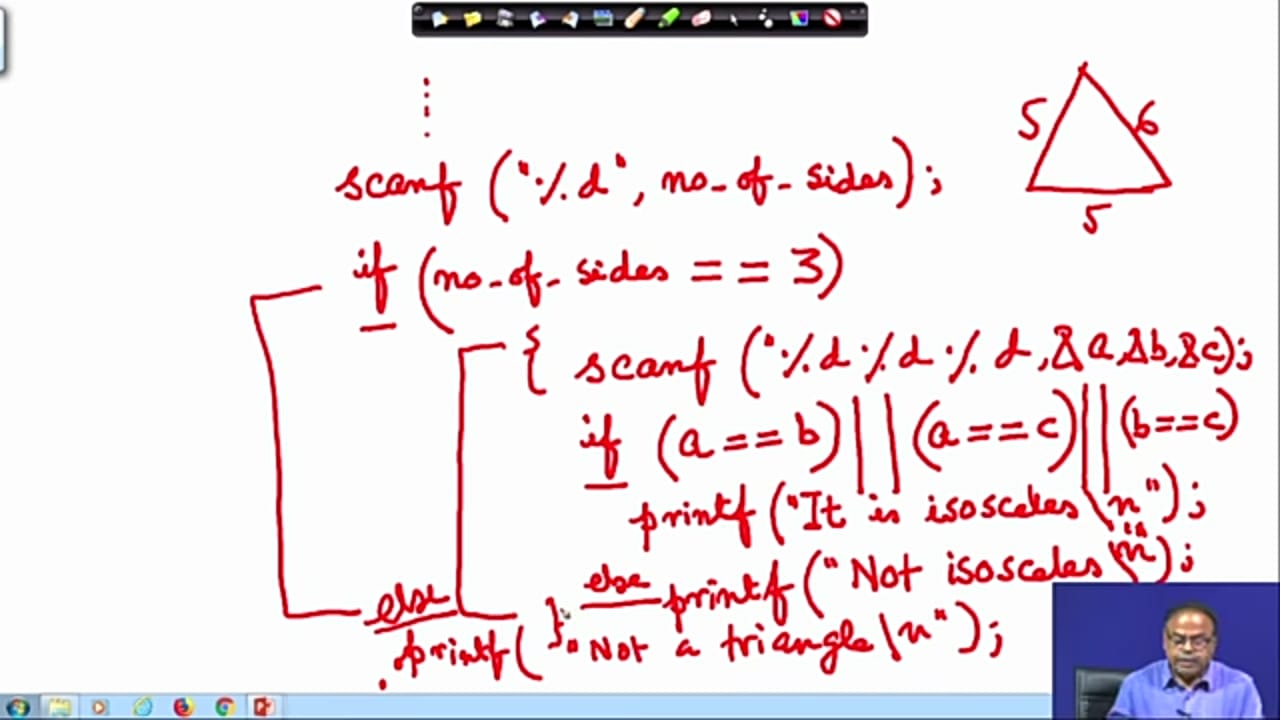 scanf ("%d", no_of_sides);
5 6
5
if (no_of_sides == 3)
{ scanf ("%d %d %d, &a, &b, &c);
if (a == b) || (a == c) || (b == c)
printf ("It is isosceles \n");
else printf ("Not isosceles \n");
else }
printf ( "Not a triangle \n");